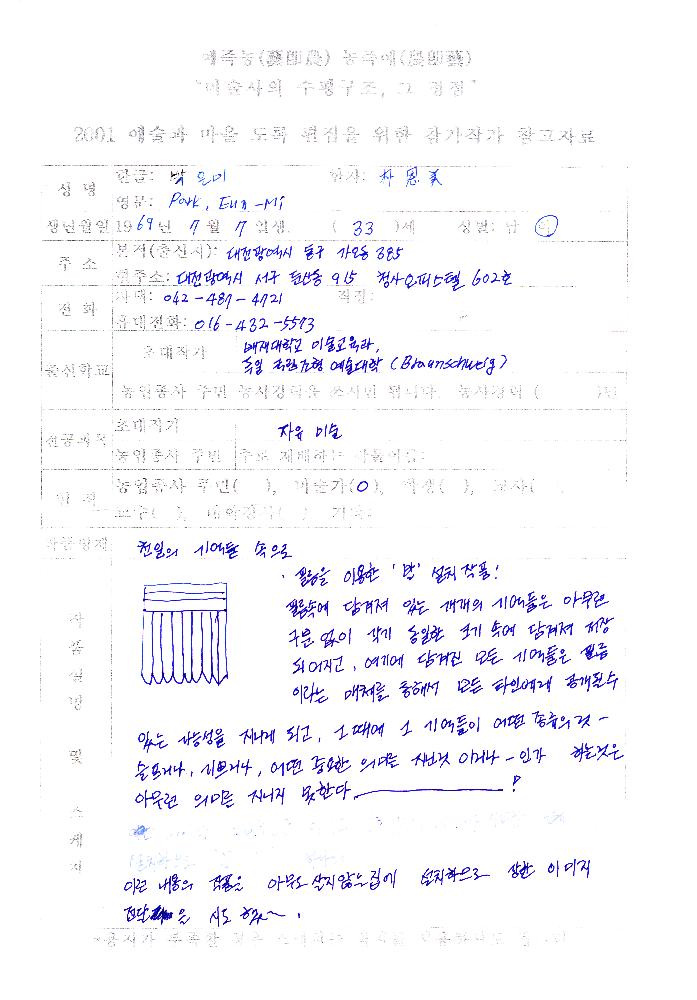 예즉농(藝卽農) 농즉예(農卽藝)
"미술사의 수평구조, 그 정점"
2001 예술과 마을 도록 편집을 위한 참가작가 참고자료
성 명 한글: 박은미 한자: 朴恩美
영문: Park, Eun-Mi
생년월일 1969년 7월 7일생. ( 33 )세 성별: 남 여
주 소 본적(출신지): 대전광역시 동구 가오동 385
현주소: 대전광역시 서구 둔산동 915 청사오피스텔 602호
전 화 자택: 042-487-4721 직장:
휴대전화: 016-432-5573
출신학교 초대작가 배재대학교 미술교육과,
독일 국립조형 예술대학 (Braunschweig)
농업종사 주민 농사경력을 쓰시면 됩니다. 농사경력 ( )년
전공과목 초대작가 자유 미술
농업종사 주민 주로 재배하는 작물이름:
농업종사 주민( ), 미술가(O), 학생( ), 교사( )
교수( ),
작품명제 천일의 기억들 속으로
· 필름을 이용한 '발' 설치작품!
필름속에 담겨져 있는 개개의 기억들은 아무런
구분없이 각기 동일한 크기 속에 담겨져 저장
되어지고, 여기에 담겨진 모든 기억들은 필름
이라는 매체를 통해서 모든 타인에게 공개될수
있는 가능성을 지니게 되고, 그때에 그 기억들이 어떤 종류의 것-
슬프거나, 기쁘거나, 어떤 중요한 의미를 지닌것 이거나-인가 하는것은
아무런 의미를 지니지 못한다 !
작품설명 및 스케치
이런 내용의 작품을 아무도 살지않는집에 설치함으로 상반 이미지
전달을 시도 했~.